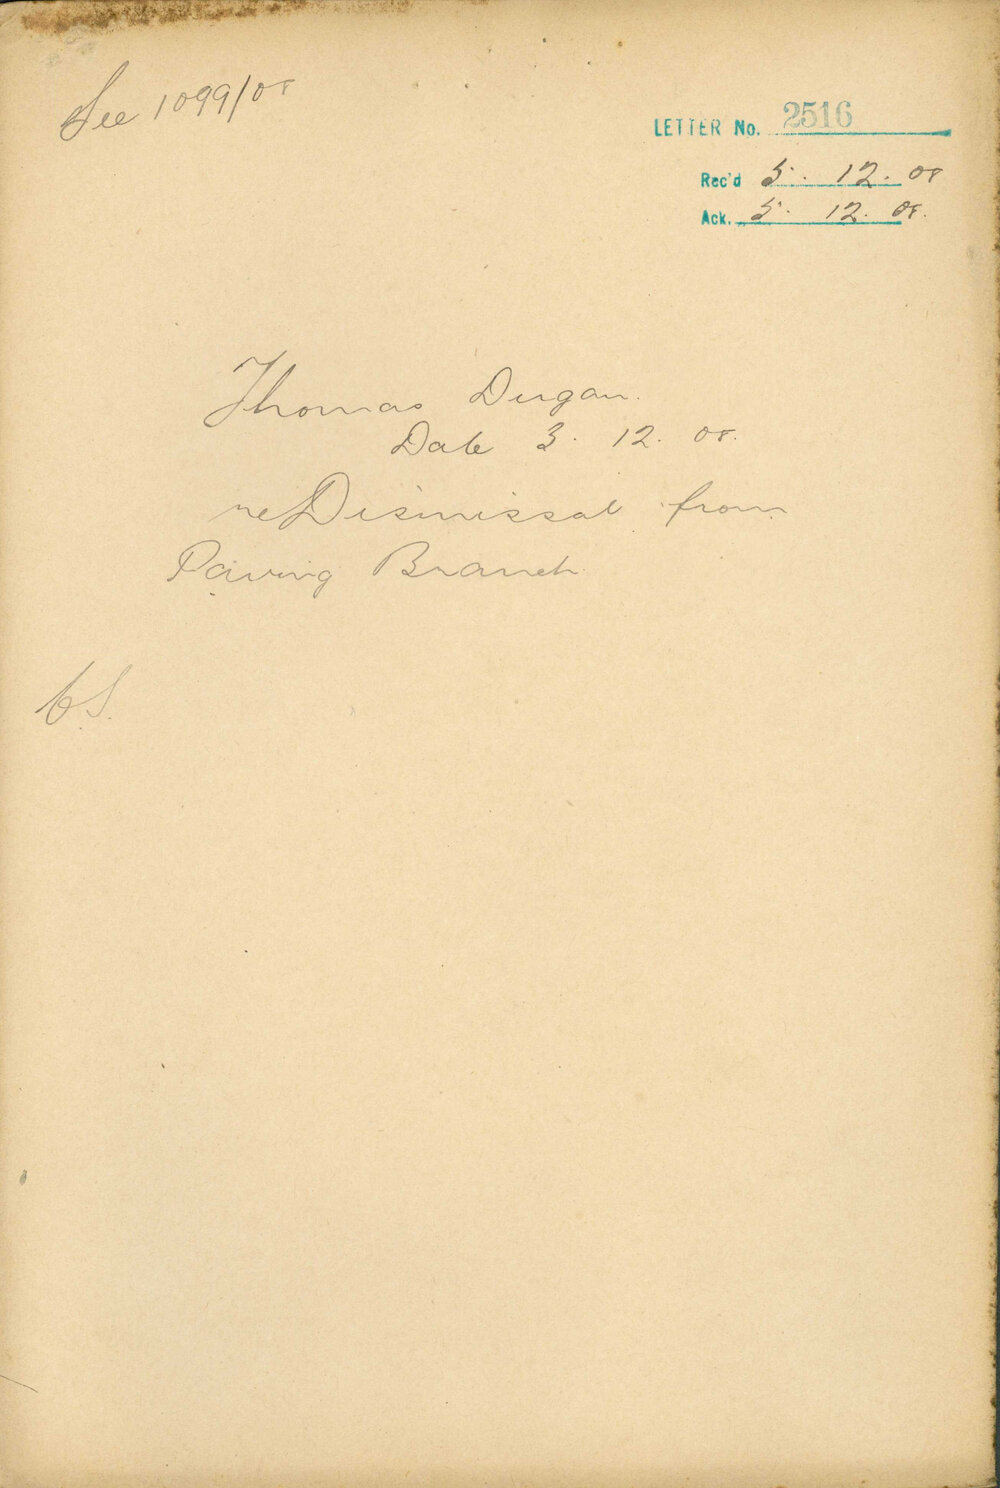 See 1099/08
LETTER No. 2516
Rec'd 5. 12. 08
Ack. 5. 12. 08.
Thomas Dugan.
Date 3. 12. 08.
re Dismissal from
Paving Branch